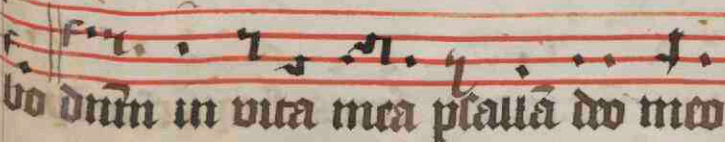 bo dnm̄ in vita mea psallā deo meo